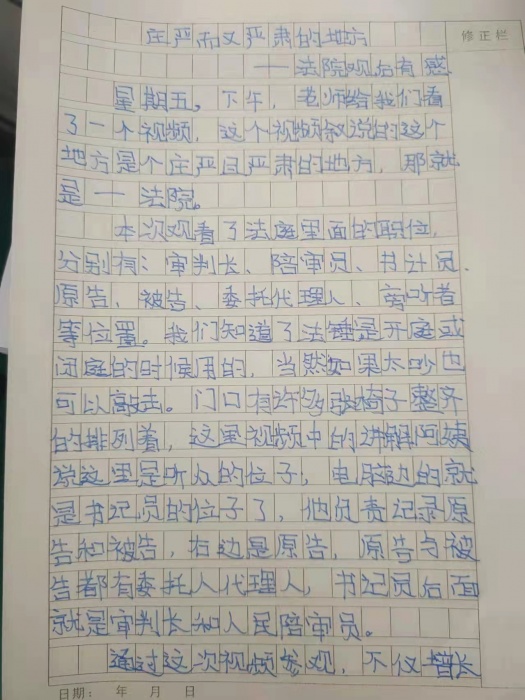 庄严而又严肃的地方
修正栏
——法院观后有感
星期五,下午,老师给我们看
了一个视频,这个视频叙说的这个
地方是个庄严且严肃的地方,那就
是——法院。
本次观看了法庭里面的职位,
分别有:审判长、陪审员、书计员、
原告、被告、委托代理人、旁听者
等位置。我们知道了法锤是开庭或
闭庭的时候用的,当然如果太吵也
可以敲击。门口有许多张椅子整齐
的排列着,这里视频中的讲解阿姨
说这里是听众的位子,电脑边的就
是书记员的位子了,他负责记录原
告和被告,右边是原告,原告与被
告都有委托人代理人,书记员后面
就是审判长和人民陪审员。
通过这次视频参观,不仅增长
日期: 年 月 日